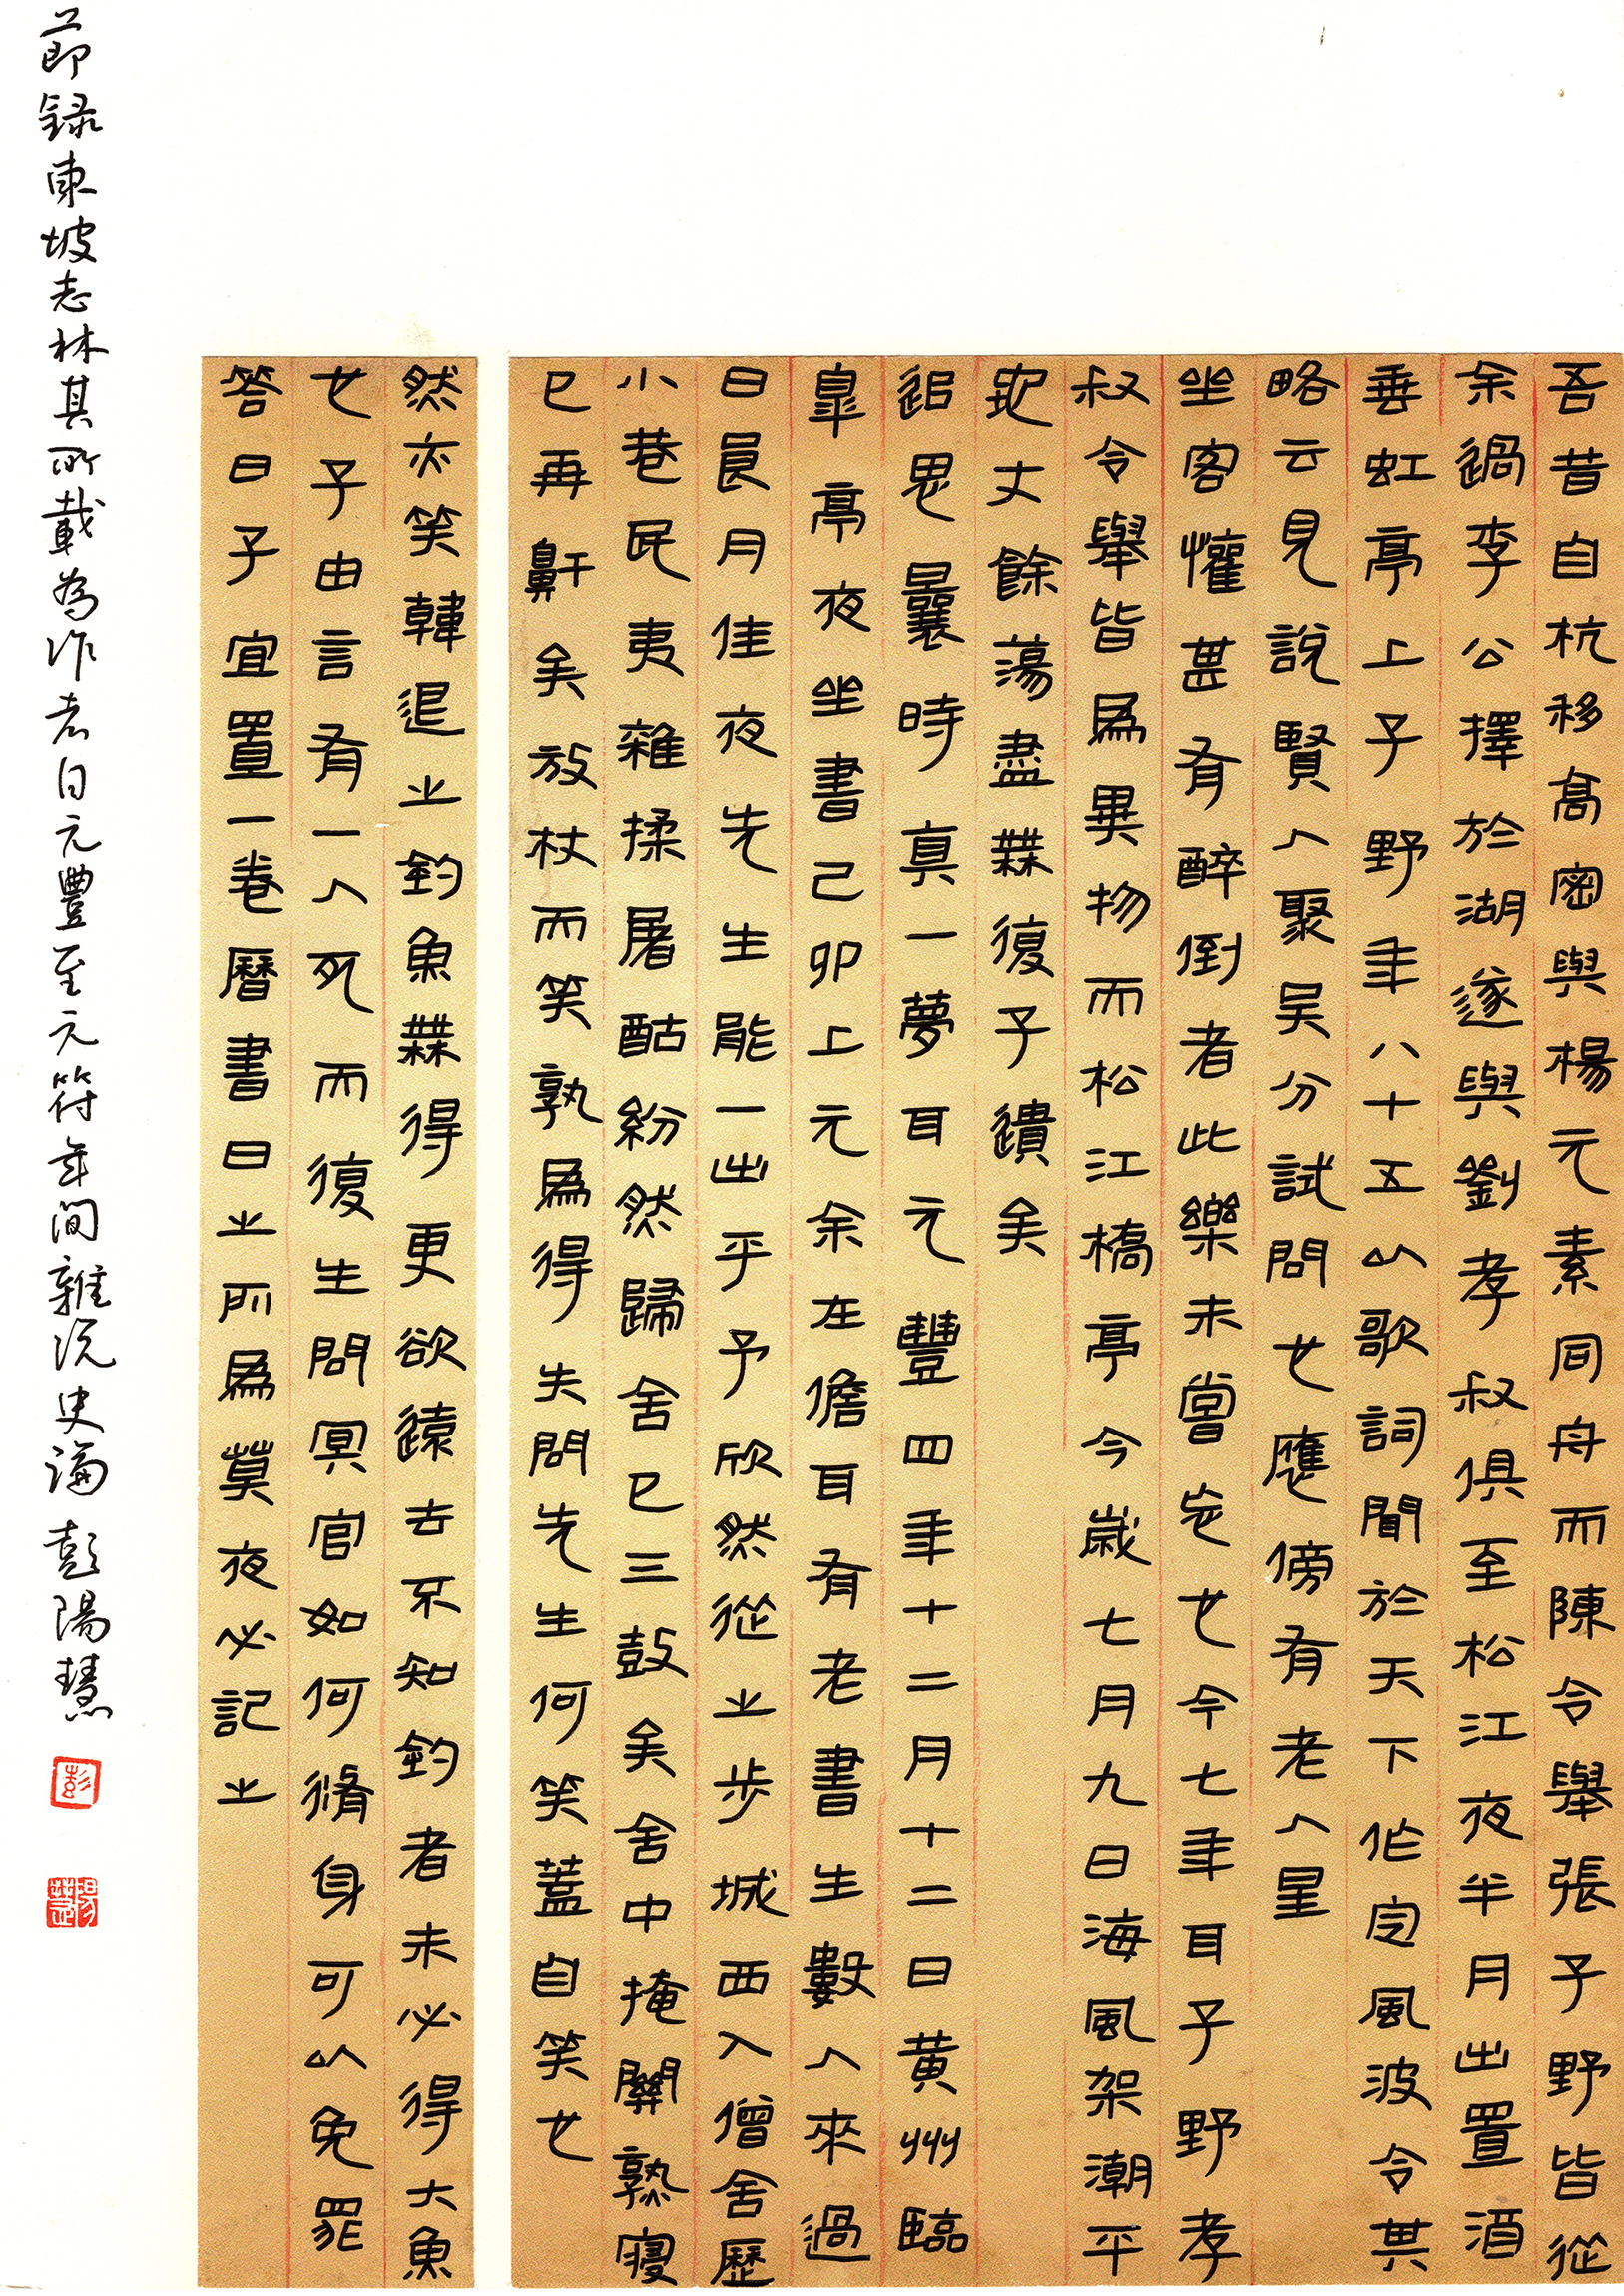 吾昔自杭移高密與楊元素同舟而陳令舉張子野皆從
余過李公擇於湖遂與劉孝叔俱至松江夜半月出置酒
垂虹亭上子野年八十五以歌詞聞於天下作定風波令其
略云見說賢人聚吳分試問也應傍有老人星
坐客懽甚有醉倒者此樂未嘗忘也今七年耳子野孝
叔令舉皆為異物而松江橋亭今歲七月九日海風架潮平
地丈餘蕩盡無復孑遺矣
追思曩時真一夢耳元豐四年十二月十二日黄州臨
皋亭夜坐書己卯上元余在儋耳有老書生數人來過
曰良月佳夜先生能一出乎予欣然從之步城西入僧舍歷
小巷民夷雜揉屠酤紛然歸舍已三鼓矣舍中掩關熟寢
已再鼾矣放杖而笑孰為得失問先生何笑蓋自笑也
然亦笑韓退之釣魚無得更欲遠去不知釣者未必得大魚
也子由言有一人死而復生問冥官如何脩身可以免罪
答曰子宜置一卷曆書日之所為莫夜必記之
節録東坡志林其所載為作者自元豐至元符年间雜説史論 彭陽慧
彭
陽慧